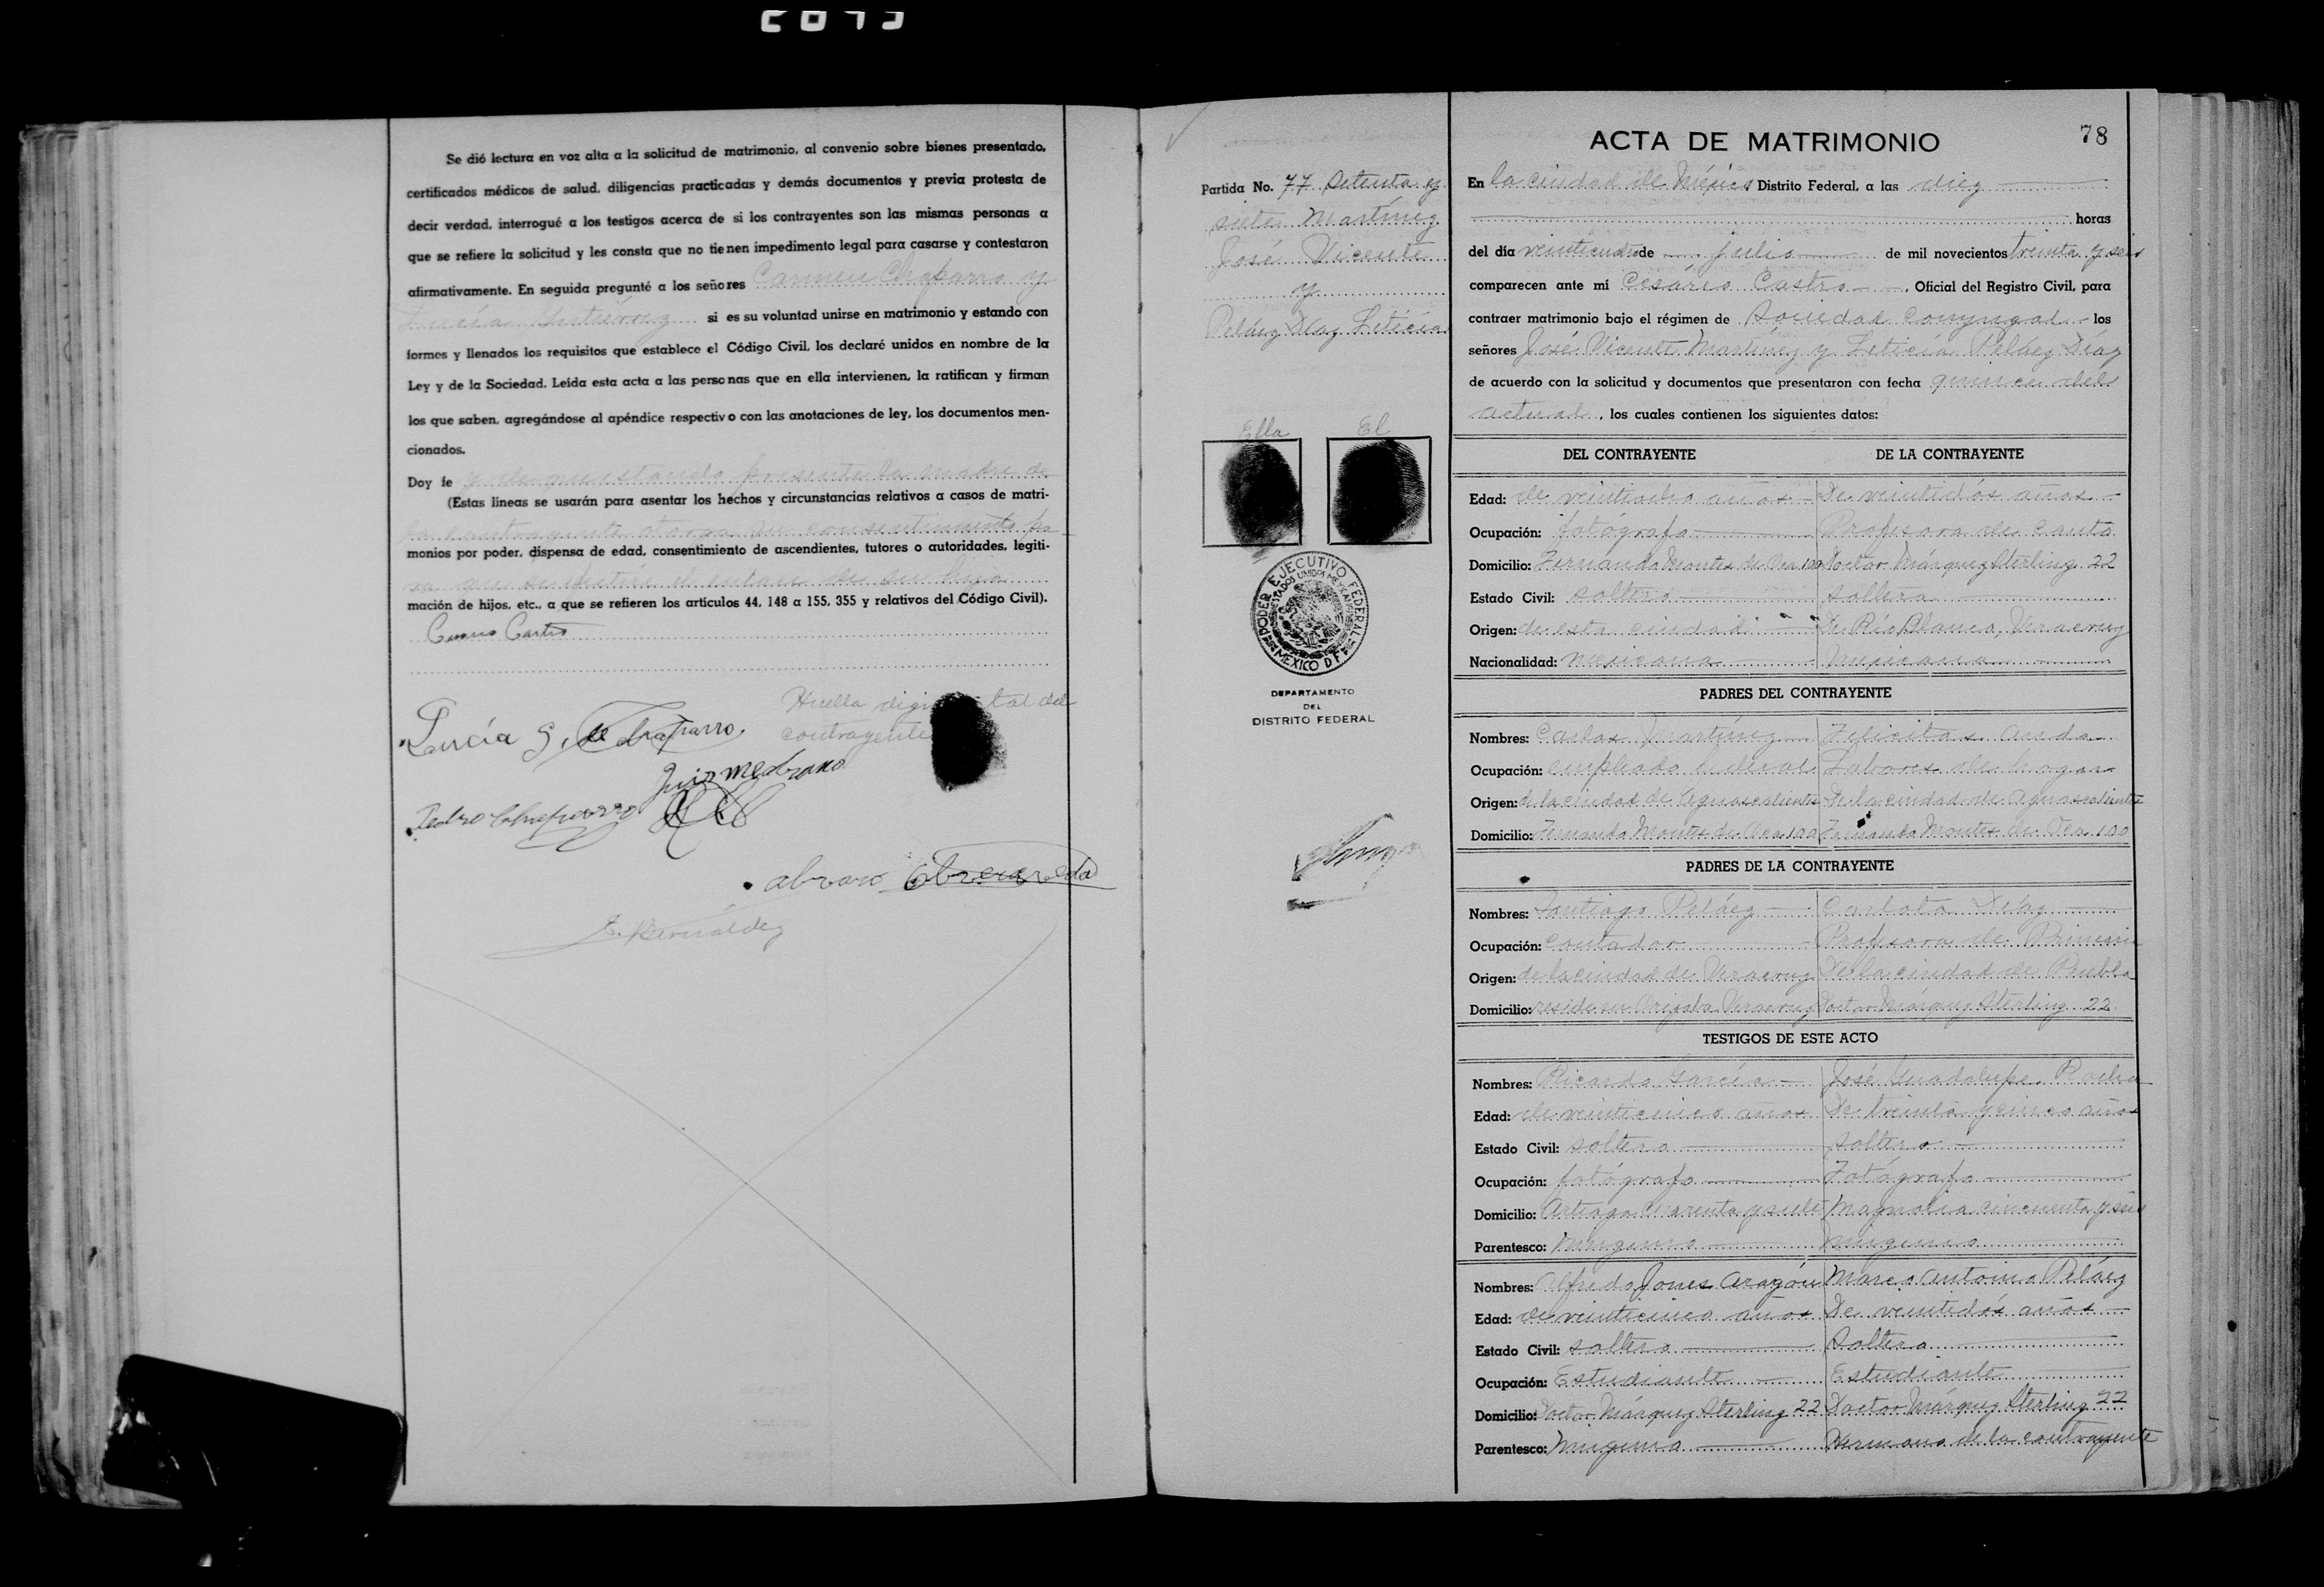 Se dió lectura en voz alta a la solicitud de matrimonio, al convenio sobre bienes presentado,
certificados médicos de salud, diligencias practicadas y demás documentos y previa protesta de
decir verdad, interrogué a los testigos acerca de si los contrayentes son las mismas personas a
que se refiere la solicitud y les consta que no tienen impedimento legal para casarse y contestaron
afirmativamente. En seguida pregunté a los señores Carmen Chaparro y
Lucía Gutiérrez si es su voluntad unirse en matrimonio y estando con
formes y llenados los requisitos que establece el Código Civil, los declaré unidos en nombre de la
Ley y de la Sociedad. Leída esta acta a las personas que en ella intervienen, la ratifican y firman
los que saben, agregándose al apéndice respectivo con las anotaciones de ley, los documentos men-
cionados.
Doy fe y de que estando presente la madre de
(Estas líneas se usarán para asentar los hechos y circunstancias relativos a casos de matri-
la contrayente otorga su consentimiento pa
monios por poder, dispensa de edad, consentimiento de ascendientes, tutores o autoridades, legiti-
ra que se efectúe el enlace de su hija
mación de hijos, etc., a que se refieren los artículos 44, 148 a 155, 355 y relativos del Código Civil).
Castro
Huella digital del
contrayente
Lucía G. de Chaparro.
Luis Medrano
Pedro Chaparro
E. Bernáldez
Partida No. 77 Setenta y
siete Martínez
José Vicente
y
Peláez Díaz Leticia
Ella El
PODER EJECUTIVO FEDERAL
ESTADOS UNIDOS MEXICANOS
MEXICO D.F.
DEPARTAMENTO
DEL
DISTRITO FEDERAL
78
ACTA DE MATRIMONIO
En la ciudad de México Distrito Federal, a las diez
horas
del día veinticuatro de julio de mil novecientos treinta y seis
comparecen ante mí Cesáreo Castro, Oficial del Registro Civil, para
contraer matrimonio bajo el régimen de Sociedad Conyugal los
señores José Vicente Martínez y Leticia Peláez Díaz
de acuerdo con la solicitud y documentos que presentaron con fecha quince del
actual, los cuales contienen los siguientes datos:
DEL CONTRAYENTE DE LA CONTRAYENTE
Edad: de veintiocho años De veintidós años
Ocupación: fotógrafo Profesora de Canto
Domicilio: Fernando Montes de Oca 100 Doctor Márquez Sterling 22
Estado Civil: soltero soltera
Origen: de esta ciudad De Río Blanco, Veracruz
Nacionalidad: mexicana mexicana
PADRES DEL CONTRAYENTE
Nombres: Carlos Martínez Felicitas Anda
Ocupación: empleado federal Labores del hogar
Origen: de la ciudad de Aguascalientes De la ciudad de Aguascalientes
Domicilio: Fernando Montes de Oca 100 Fernando Montes de Oca 100
PADRES DE LA CONTRAYENTE
Nombres: Santiago Peláez Carlota Díaz
Ocupación: contador Profesora de Primaria
Origen: de la ciudad de Veracruz De la ciudad de Puebla
Domicilio: reside en Orizaba Veracruz Doctor Márquez Sterling 22
TESTIGOS DE ESTE ACTO
Nombres: Ricardo García José Guadalupe
Edad: de veinticinco años De treinta y cinco años
Estado Civil: soltero soltero
Ocupación: fotógrafo Fotógrafo
Domicilio: Arteaga cuarenta y siete Magnolia cincuenta y seis
Parentesco: ninguno ninguno
Nombres: Alfredo Jones Aragón Marco Antonio Peláez
Edad: de veinticinco años De veintidós años
Estado Civil: soltero Soltero
Ocupación: Estudiante Estudiante
Domicilio: Doctor Márquez Sterling 22 Doctor Márquez Sterling 22
Parentesco: ninguno Hermano de la contrayente